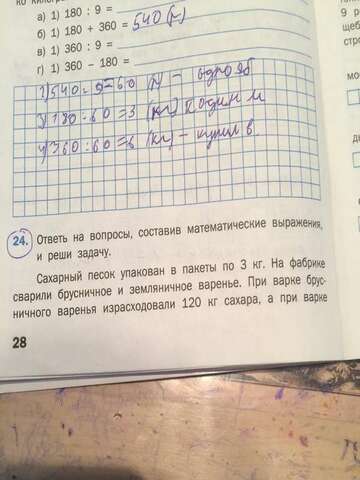 а) 1) 180 : 9 =
б) 1) 180 + 360 = 540 (г)
в) 1) 360 : 9 =
г) 1) 360 – 180 =
1) 540 : 9 = 60 (г) –
3) 180 : 60 = 3 (кг)
4) 360 : 60 = 6 (кг) – купил в.
24. Ответь на вопросы, составив математические выражения,
и реши задачу.
Сахарный песок упакован в пакеты по 3 кг. На фабрике
сварили брусничное и земляничное варенье. При варке брус-
ничного варенья израсходовали 120 кг сахара, а при варке
28